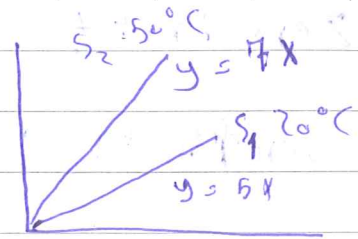 S2 50°C
y = 7x
S1 20°C
y = 5x